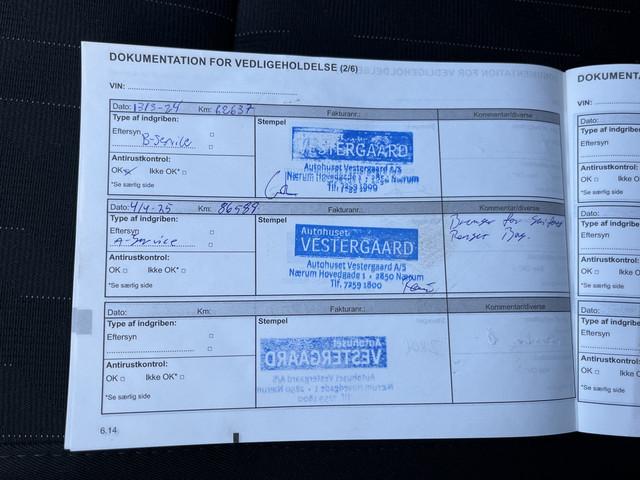 DOKUMENTATION FOR VEDLIGEHOLDELSE (2/6)
VIN:
Dato: 13/3-24 Km: 62637 Fakturanr.: Kommentar/diverse
Type af indgriben:
Stempel
Eftersyn
B-Service
VESTERGAARD
Autohuset Vestergaard A/S
Nærum Hovedgade 1 • 2850 Nærum
Tlf. 7259 1800
Antirustkontrol:
OK Ikke OK*
*Se særlig side
Dato: 4/4-25 Km: 86589 Fakturanr.: Kommentar/diverse
Type af indgriben:
Stempel
Eftersyn
A-Service
Autohuset
VESTERGAARD
Autohuset Vestergaard A/S
Nærum Hovedgade 1 • 2850 Nærum
Tlf. 7259 1800
for
Bag.
Antirustkontrol:
OK Ikke OK*
*Se særlig side
Dato: Km: Fakturanr.: Kommentar/diverse
Type af indgriben:
Stempel
Eftersyn
Autohuset
VESTERGAARD
Autohuset Vestergaard A/S
Nærum Hovedgade 1 • 2850 Nærum
Tlf. 7259 1800
Antirustkontrol:
OK Ikke OK*
*Se særlig side
6.14
DOKUMENTA
VIN:
Dato:
Type af indgriben
Eftersyn
Antirustkontrol:
OK Ikke
*Se særlig side
Dato:
Type af indgriben
Eftersyn
Antirustkontrol:
OK Ikke
*Se særlig side
Dato:
Type af indgriben
Eftersyn
Antirustkontrol:
OK Ikke
*Se særlig side